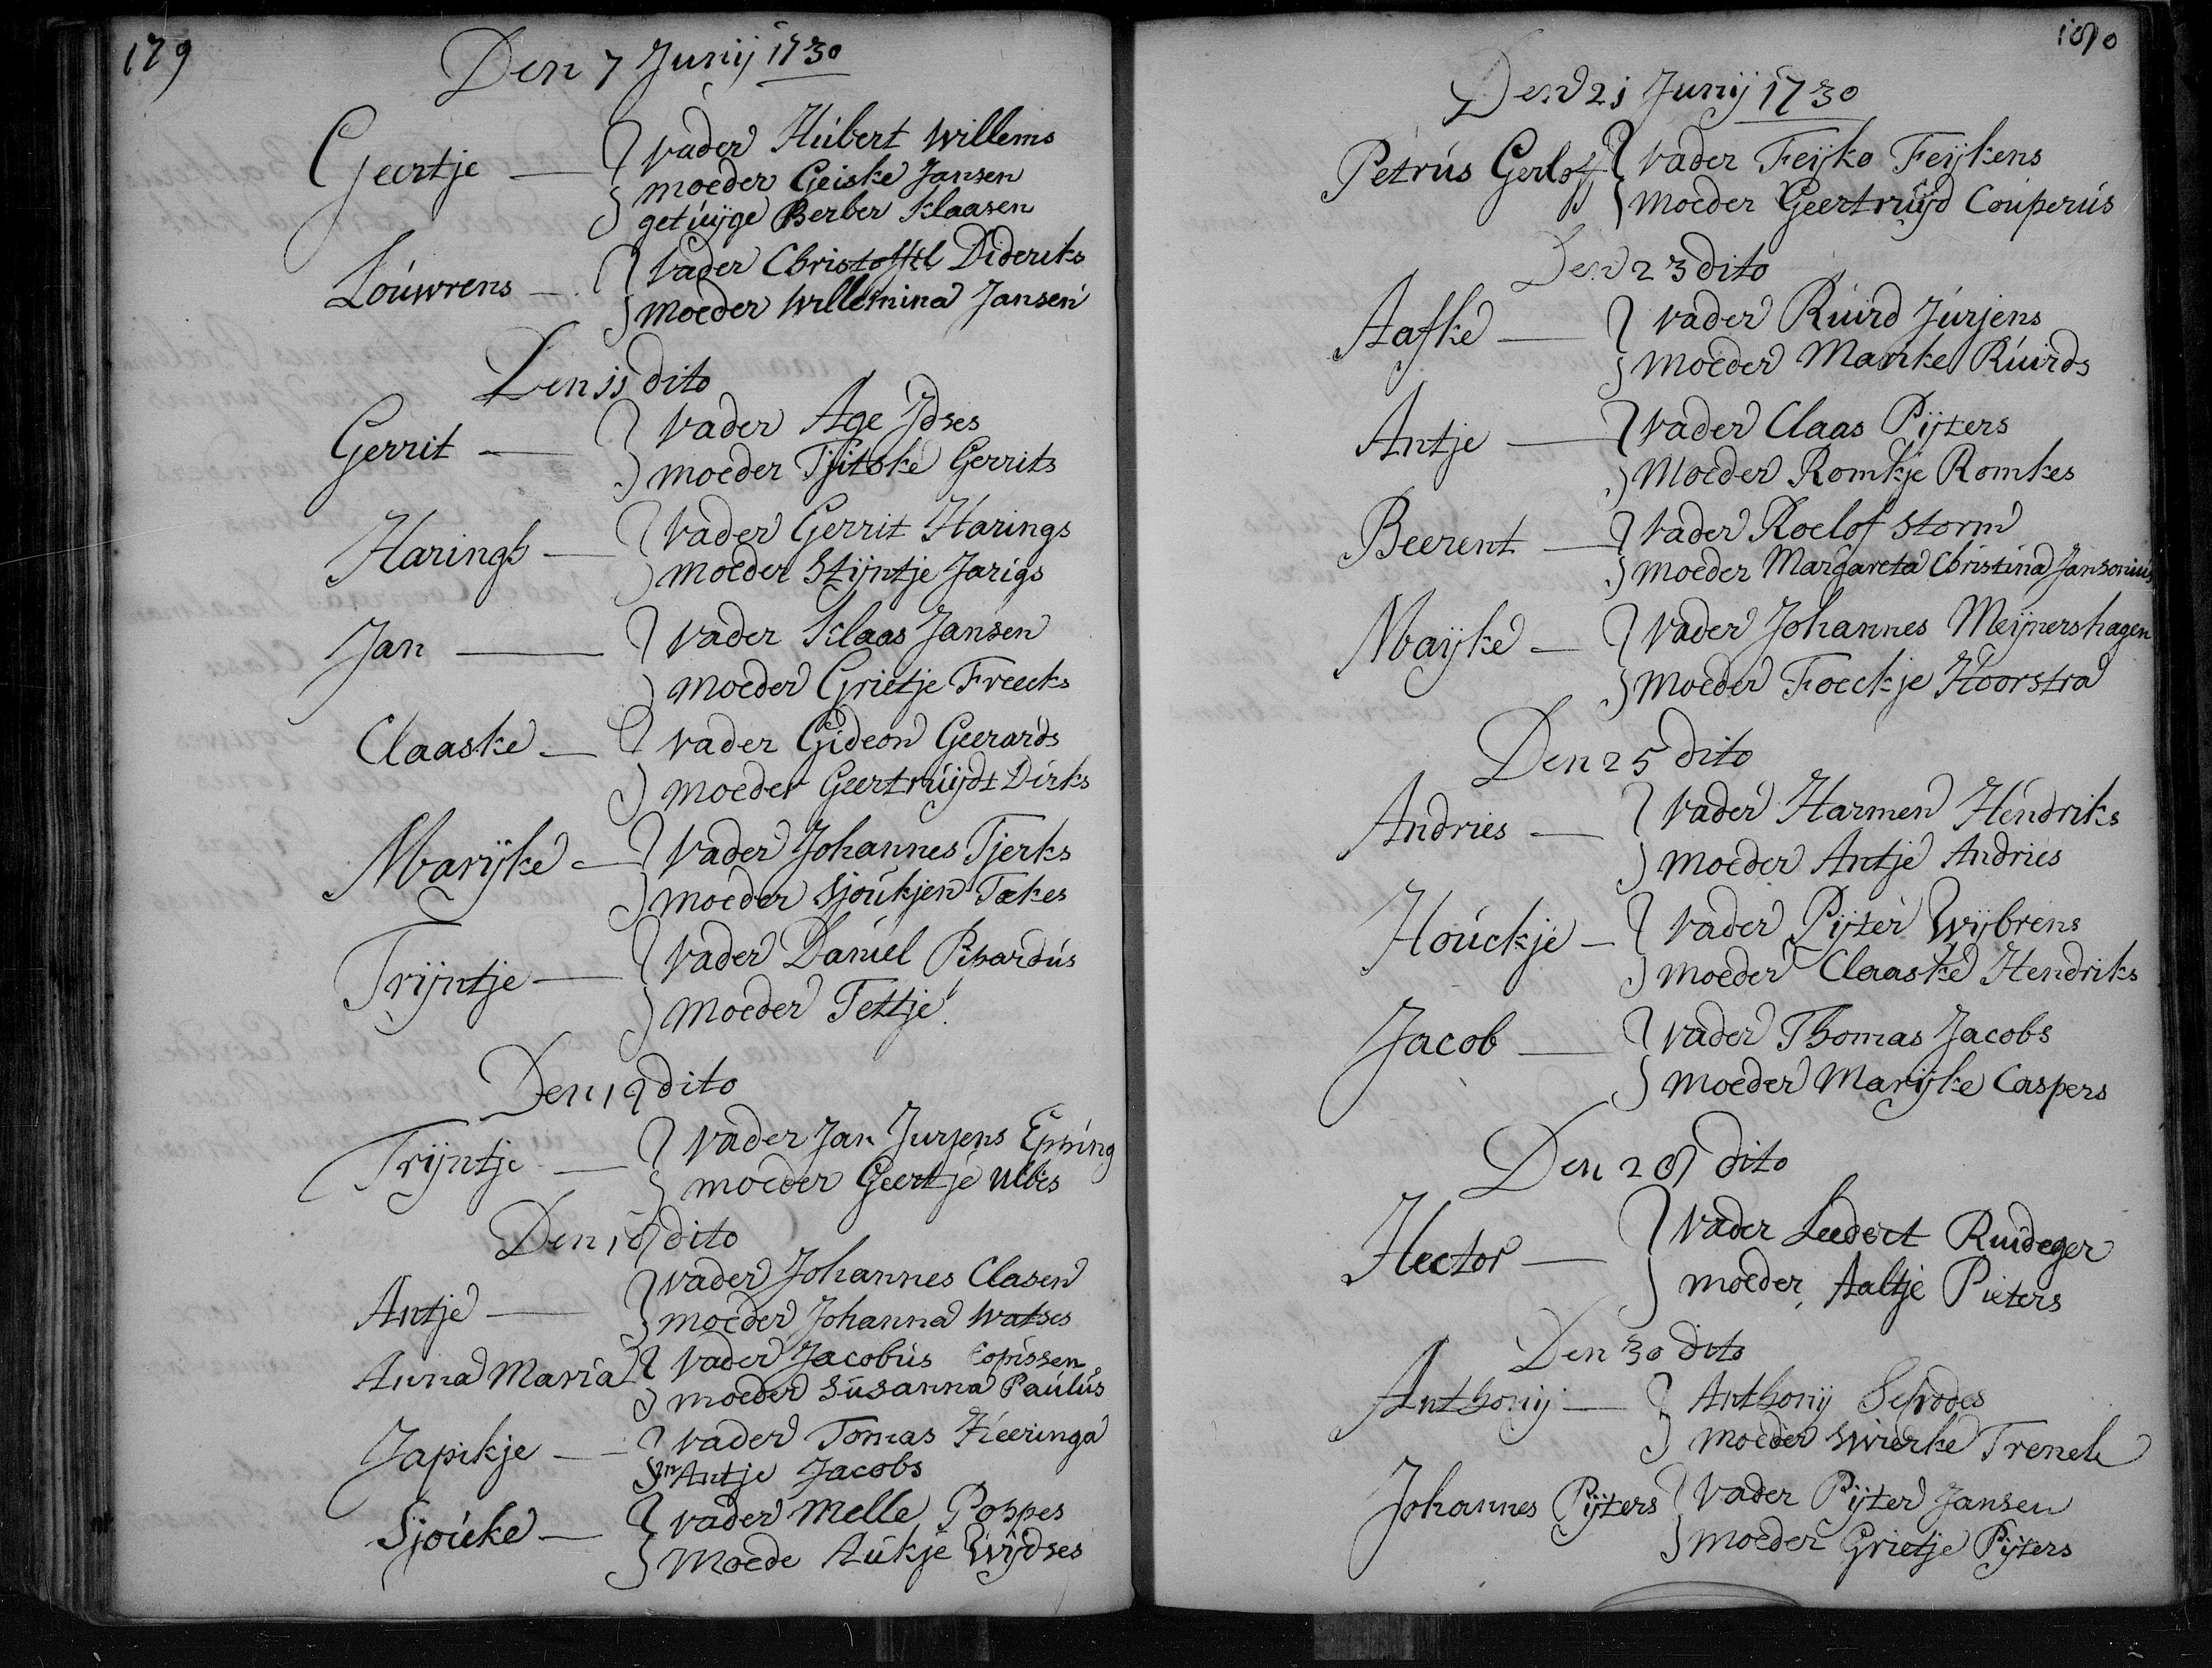 179
Den 7 Junij 1730
Geertje — vader Húbert Willems
moeder Geiske Jansen
getúijge Berber Klaasen
Loúwrens — vader Christoffel Dideriks
moeder Willemina Jansen
Den 11 dito
Gerrit — vader Age Ydses
moeder Tjitske Gerrits
Haringh — vader Gerrit Harings
moeder Stijntje Jarigs
Jan — vader Klaas Jansen
moeder Grietje Freecks
Claaske — vader Gideon Geerards
moeder Geertrúijdt Dirks
Marijke — vader Johannes Tjerks
moeder Sjoúkjen Takes
Trijntje — vader Daniel
moeder Tettje
Den dito
Trijntje — vader Jan Jurjens Epping
moeder Geertje Ulbes
Den 18 dito
Antje — vader Johannes Clasen
moeder Johanna Watses
Anna Maria vader Jacobús Copissen
moeder Súsanna Paúlús
Japikje — vader Tomas Heeringa
m Antje Jacobs
Sjoúke — vader Melle Poppes
Moede Aúkje Wijdses
180
Den 21 Junij 1730
Petrús Gerloff vader Feijko Feijkens
moeder Geertrúijd Coúperús
Den 23 dito
Aafke — vader Rúúrd Júrjens
moeder Manke Rúúrds
Antje — vader Claas Pijters
Moeder Romkje Romkes
Beerent — vader Roelof Storm
moeder Margareta Christina Jansoniús
Maijke — vader Johannes Meijnershagen
moeder Foeckje Hoorstra
Den 25 dito
Andries — vader Harmen Hendriks
moeder Antje Andries
Hoúckje — vader Pijter Wijbrens
moeder Claaske Hendriks
Jacob — vader Thomas Jacobs
moeder Marijke Caspers
Den 28 dito
Hector — vader Leedert Ruideger
moeder Aaltje Pieters
Den 30 dito
Anthonij — Anthonij
moeder Swierke
Johannes Pijters vader Pijter Jansen
moeder Grietje Pijters